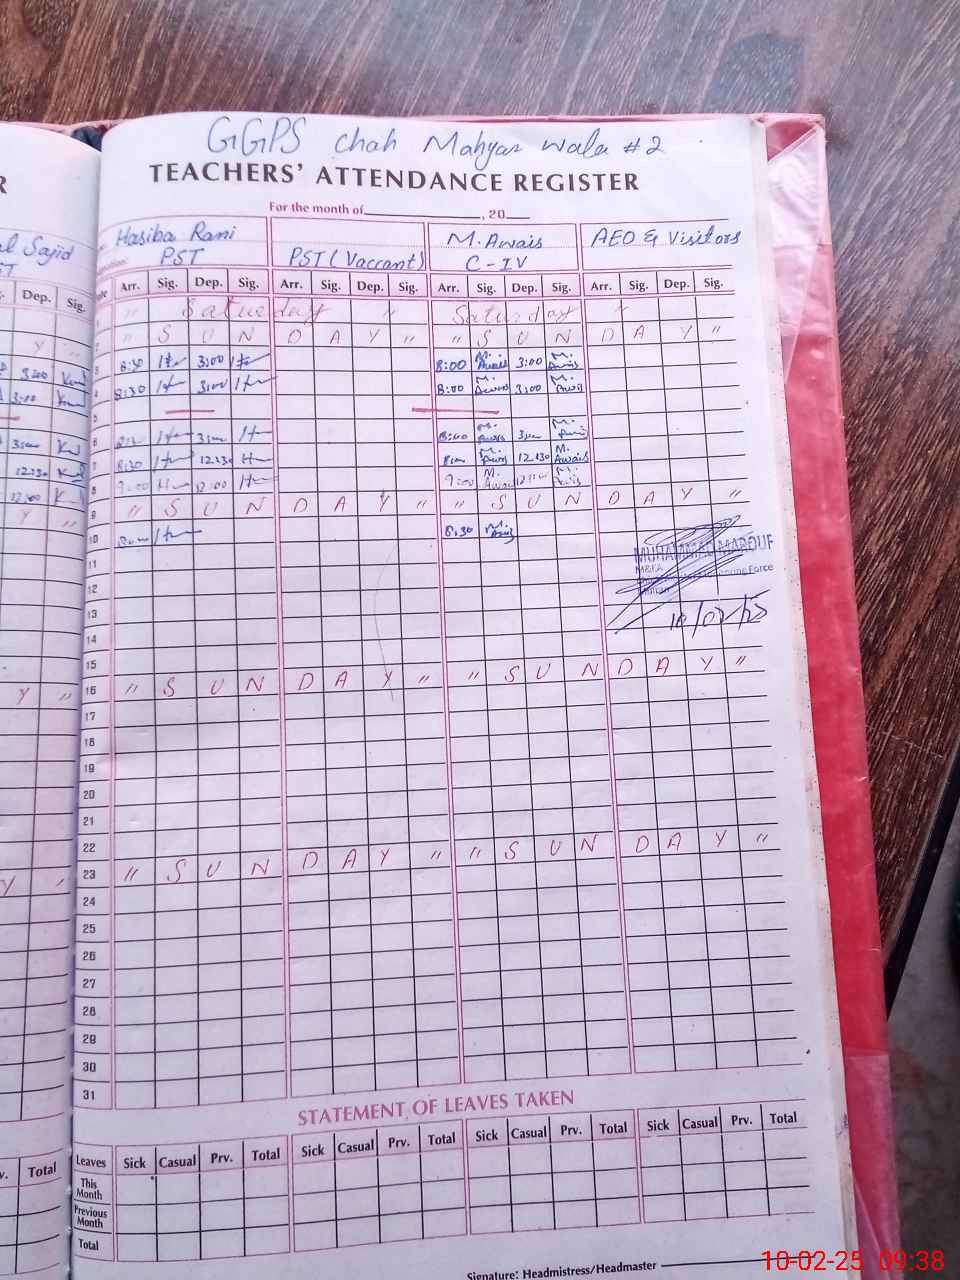 GGPS Chah Mahyar Wala #2
TEACHERS' ATTENDANCE REGISTER
For the month of , 20
Hasiba Rani M. Awais AEO & Visitors
PST PST (Vaccant) C-IV
Sajid
Dep. Sig.
Arr. Sig. Dep. Sig. Arr. Sig. Dep. Sig. Arr. Sig. Dep. Sig. Arr. Dep. Sig.
" Saturday " Saturday "
2 " S U N D A Y " " S U N D A Y "
3 8:30 3:00 8:00 M. Awais 3:00 M. Awais
4 8:30 3:00 8:00 M. Awais 3:00 M. Awais
5
6 M. Awais M. Awais
7 8:30 12:30 M. Awais 12:30 M. Awais
8 9:00 12:00 9:00 M. Awais M. Awais
9 " S U N D A Y " " S U N D A Y "
10 8:30 M. Awais
MUHAMMAD MAROUF
M&EA
Force
11
12
13
14
10/02/25
15
16 " S U N D A Y " " S U N D A Y "
17
18
19
20
21
22
23 " S U N D A Y " " S U N D A Y "
24
25
26
27
28
29
30
31
STATEMENT OF LEAVES TAKEN
Leaves Sick Casual Prv. Total Sick Casual Prv. Total Sick Casual Prv. Total Sick Casual Prv. Total
This Month
Previous Month
Total
Total
Signature: Headmistress/Headmaster
10-02-25 09:38